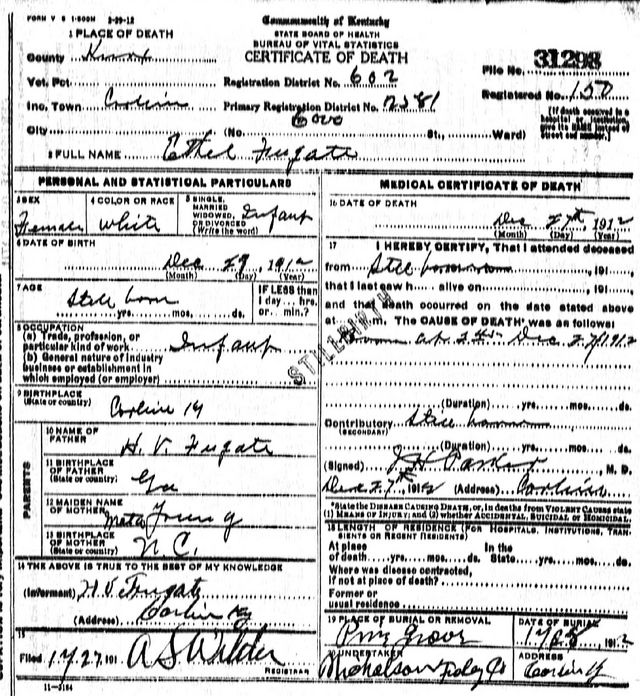 FORM V S 1-500M 2-29-12
Commonwealth of Kentucky
STATE BOARD OF HEALTH
BUREAU OF VITAL STATISTICS
CERTIFICATE OF DEATH
1 PLACE OF DEATH
County Knox
Vot. Pct
Inc. Town Corbin
City
Registration District No. 602
Primary Registration District No. 2381
6000
(No. St., Ward)
File No. 31298
Registered No. 150
[If death occurred in a hospital or institution, give its NAME instead of street and number.]
2 FULL NAME Ethel Fugate
PERSONAL AND STATISTICAL PARTICULARS
3 SEX
Female
4 COLOR OR RACE
White
5 SINGLE, MARRIED WIDOWED, OR DIVORCED (Write the word)
Infant
6 DATE OF BIRTH
Dec 29, 1912
(Month) (Day) (Year)
7 AGE
Still born
yrs. mos. ds.
IF LESS than
1 day... hrs.
or... min.?
8 OCCUPATION
(a) Trade, profession, or
particular kind of work Infant
(b) General nature of industry
business or establishment in
which employed (or employer)
9 BIRTHPLACE
(State or country)
Corbin Ky
PARENTS
10 NAME OF FATHER
H. V. Fugate
11 BIRTHPLACE OF FATHER
(State or country)
12 MAIDEN NAME OF MOTHER
Young
13 BIRTHPLACE OF MOTHER
(State or country)
N. C.
14 THE ABOVE IS TRUE TO THE BEST OF MY KNOWLEDGE
(Informant) H. V. Fugate
(Address) Corbin Ky
15
Filed 191 A S Wilder
REGISTRAR
11-3184
MEDICAL CERTIFICATE OF DEATH
16 DATE OF DEATH
Dec 27th, 1912
(Month) (Day) (Year)
17 I HEREBY CERTIFY, That I attended deceased
from Still born, 191
that I last saw h alive on, 191
and that death occurred on the date stated above
at m. The CAUSE OF DEATH* was as follows:
Born at Dec 27 1912
STILLBIRTH
(Duration) yrs. mos. ds.
Contributory Still born
(SECONDARY)
(Duration) yrs. mos. ds.
(Signed) J H Parker, M. D.
Dec 27th, 1912 (Address) Corbin
*State the DISEASE CAUSING DEATH, or, in deaths from VIOLENT CAUSES state (1) MEANS OF INJURY; and (2) whether ACCIDENTAL, SUICIDAL or HOMICIDAL.
18 LENGTH OF RESIDENCE (FOR HOSPITALS, INSTITUTIONS, TRANSIENTS OR RECENT RESIDENTS)
At place of death yrs. mos. ds. In the State yrs. mos. ds.
Where was disease contracted,
if not at place of death?
Former or
usual residence
19 PLACE OF BURIAL OR REMOVAL
Pine Grove
DATE OF BURIAL
1912
20 UNDERTAKER
ADDRESS
Corbin Ky